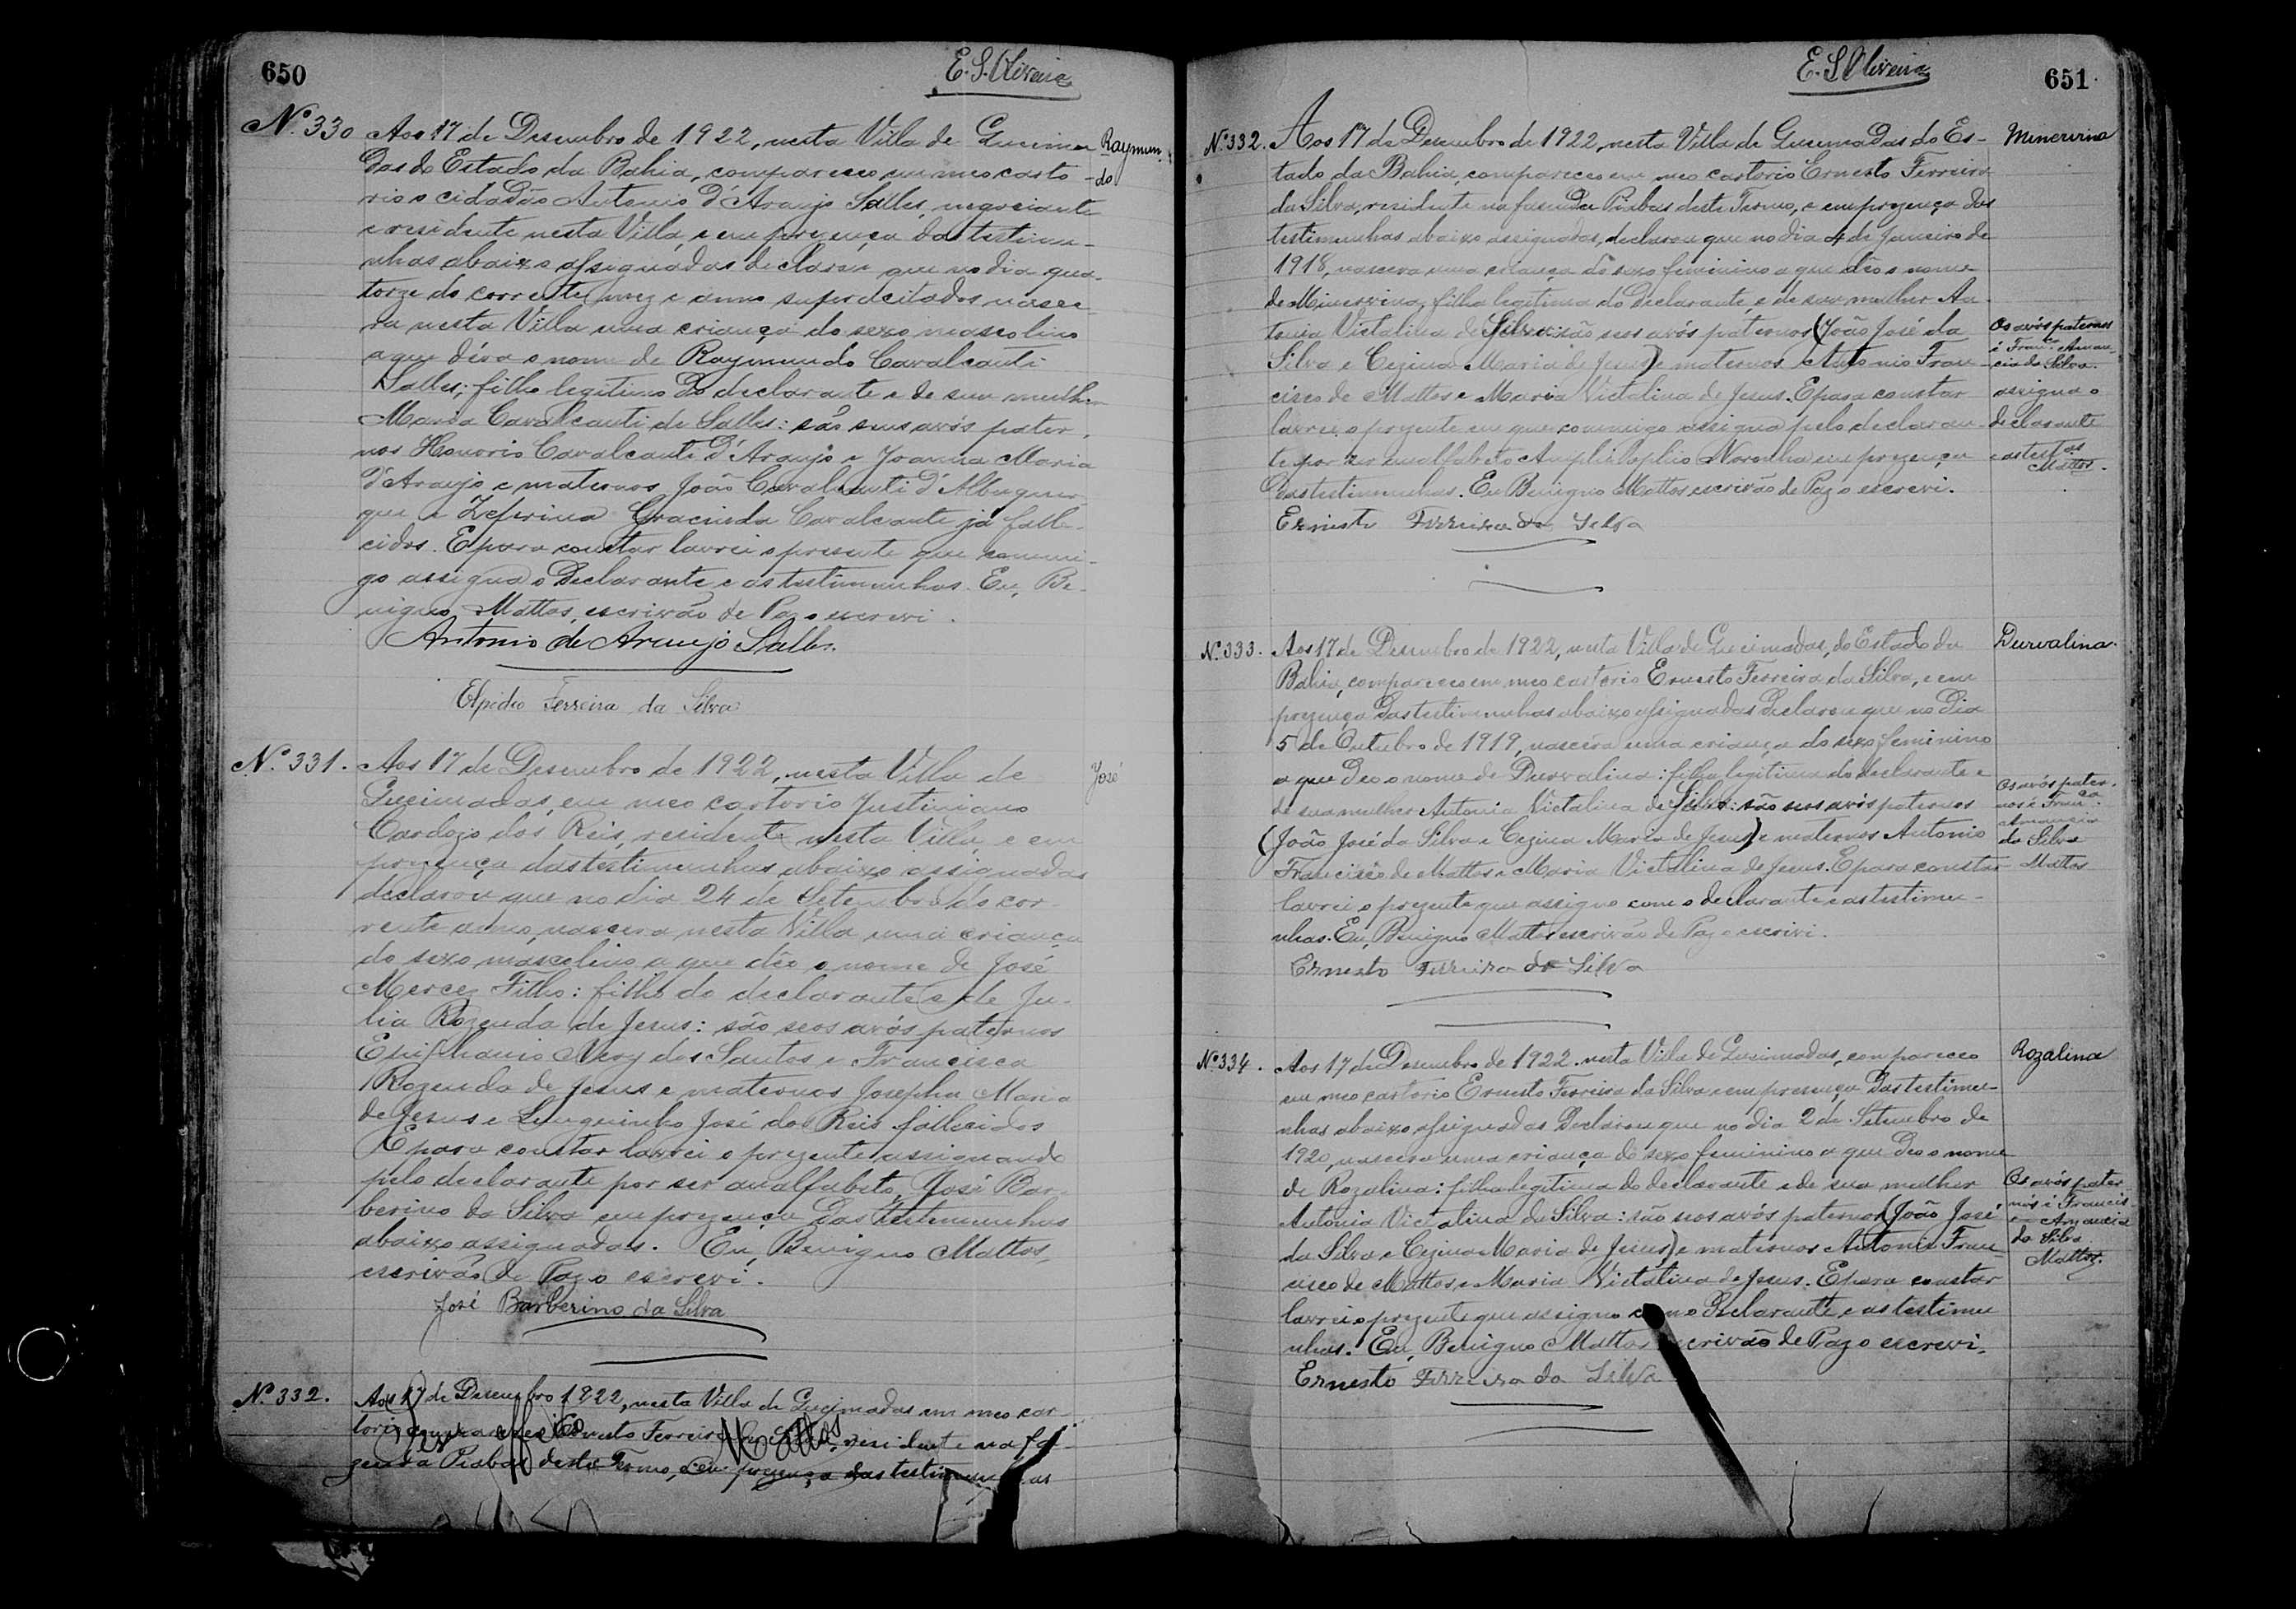 650
E. S. Oliveira
Nº 330
Aos 17 de Desembro de 1922, nesta Villa de Queima
Raymun-
das do Estado da Bahia, compareceo em meo carto
-do
rio o cidadão Antonio d'Araujo Salles, negociante
e residente nesta Villa, e em prezença das testimu-
nhas abaixo assignadas declarou que no dia qua-
torze do corrente mez e anno superacitados nasce
ra nesta Villa uma criança do sexo mascolino
a que déra o nome de Raymundo Cavalcanti
Salles; filho legitimo do declarante e de sua mulher
Maria Cavalcanti de Salles: são seus avós pater-
nos Honorio Cavalcante d'Araujo e Joanna Maria
d'Araujo e maternos João Cavalcanti d'Albuquer
que e Zeferina Gracinda Cavalcante já falle-
cidos. E para constar lavrei o presente que commi-
go assigna o declarante e as testimunhas. Eu, Be-
nigno Mattos, escrivão de Paz o escrevi.
Antonio de Araujo Salles.
Elpidio Ferreira da Silva
Nº 331.
Aos 17 de Desembro de 1922, nesta Villa de
José
Queimadas, em meo cartorio Justiniano
Cardozo dos Reis, residente nesta Villa, e em
prezença das testimunhas abaixo assignadas
declarou que no dia 24 de Setembro do cor-
rente anno, nascera nesta Villa uma criança
do sexo mascolino a que dêo o nome de José
Merces Filho: filho do declarante e de Ju-
lia Rozenda de Jesus: são seos avós paternos
Epiphanio Nery dos Santos e Francisca
Rozenda de Jesus e maternos Josepha Maria
de Jesus e José dos Reis fallecidos
E para constar lavrei o prezente assignando
pelo declarante por ser analfabeto, José Bar-
berino da Silva em prezença das testemunhas
abaixo assignadas. Eu, Benigno Mattos,
escrivão de Paz o escrevi.
José Barberino da Silva
Nº 332.
Aos 17 de Desembro 1922, nesta Villa de Queimadas em meo car-
torio compareceo Ernesto Ferreira da Silva, residente na fa-
zenda Piabas deste Termo, e em prezença das testimunhas
sem effeito
Mattos
E. S. Oliveira
651
Nº 332.
Aos 17 de Desembro de 1922, nesta Villa de Queimadas do Es-
Minervina
tado da Bahia, compareceo em meo cartorio Ernesto Ferreira
da Silva, residente na fasenda Piabas deste Termo, e em prezença das
testimunhas abaixo assignadas, declarou que no dia 4 de Janeiro de
1918, nascera uma criança do sexo feminino a que dêo o nome
de Minervina, filha legitima do declarante, e de sua mulher An-
tonia Victalina da Silva: são seos avós paternos (João José da
Silva e Cezina Maria de Jesus) e maternos Antonio Fran-
cisco de Mattos e Maria Victalina de Jesus. E para constar
lavrei o prezente em que commigo assigna pelo declaran-
te por ser analfabeto Amphilophio Noronha em prezença
das testimunhas. Eu Benigno Mattos escrivão de Paz o escrevi.
Ernesto Ferreira da Silva
Os avós paternos
é Franca. Aman-
cia da Silva.
assigna o
declarante
e as testas
Mattos.
Nº 333.
Aos 17 de Desembro de 1922, nesta Villa de Queimadas, do Estado da
Durvalina.
Bahia, compareceo em meo cartorio Ernesto Ferreira da Silva, e em
prezença das testimunhas abaixo assignadas declarou que no dia
5 de Outubro de 1919, nascera uma criança do sexo feminino
a que deo o nome de Durvalina: filha legitima do declarante e
de sua mulher Antonia Victalina da Silva: são seos avós paternos
(João José da Silva e Cezina Maria de Jesus) e maternos Antonio
Francisco de Mattos e Maria Victalina de Jesus. E para constar
lavrei o prezente que assigno com o declarante e as testimu-
nhas. Eu, Benigno Mattos escrivão de Paz o escrivi.
Ernesto Ferreira da Silva
Os avós pater-
nos é Franca.
Amancia
da Silva
Mattos
Nº 334.
Aos 17 de Desembro de 1922. nesta Villa de Queimadas, compareceo
Rozalina
em meo cartorio Ernesto Ferreira da Silva e em presença das testimu-
nhas abaixo assignadas declarou que no dia 2 de Setembro de
1920, nascera uma criança do sexo feminino a que deo o nome
de Rozalina: filha legitima do declarante e de sua mulher
Antonia Victalina da Silva: são seos avós paternos (João José
da Silva e Cezina Maria de Jesus) e maternos Antonio Fran-
cisco de Mattos e Maria Victalina de Jesus. E para constar
lavrei o prezente que assigno com o declarante e as testimu
nhas. Eu, Benigno Mattos escrivão de Paz o escrevi.
Ernesto Ferreira da Silva
Os avós pater-
nos é Francis-
ca Amancia
da Silva
Mattos.